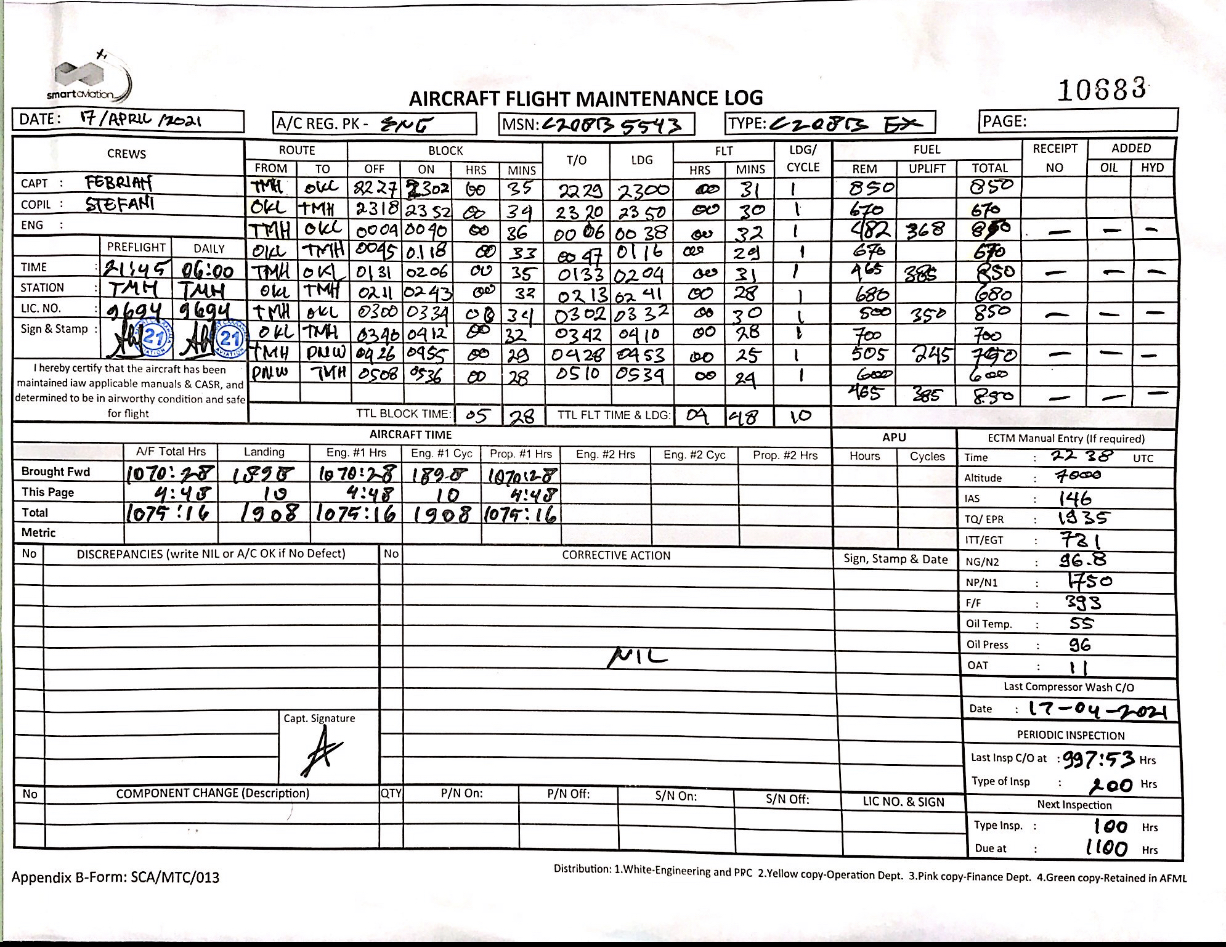 smartaviation
10683
AIRCRAFT FLIGHT MAINTENANCE LOG
DATE: 17/APRIL/2021 A/C REG. PK - ENG MSN: C208B 5543 TYPE: C208B EX PAGE:
CREWS ROUTE BLOCK T/O LDG FLT LDG/CYCLE FUEL RECEIPT NO ADDED
FROM TO OFF ON HRS MINS HRS MINS REM UPLIFT TOTAL OIL HYD
CAPT : FEBRIAH TMH OKL 2227 2302 00 35 2229 2300 00 31 1 850 850
COPIL : STEFANI OKL TMH 2318 2352 00 34 2320 2350 00 30 1 670 670
ENG : TMH OKL 0004 0040 00 36 0006 0038 00 32 1 482 368 850 — — —
PREFLIGHT DAILY OKL TMH 0045 0118 00 33 0047 0116 00 29 1 670 670
TIME : 21:45 06:00 TMH OKL 0131 0206 00 35 0133 0204 00 31 1 465 385 850 — — —
STATION : TMH TMH OKL TMH 0211 0243 00 32 0213 0241 00 28 1 680 680
LIC. NO. : 9694 9694 TMH OKL 0300 0334 00 34 0302 0332 00 30 1 500 350 850 — — —
Sign & Stamp : 21 21 OKL TMH 0340 0412 00 32 0342 0410 00 28 1 700 700
TMH PNW 0426 0455 00 29 0428 0453 00 25 1 505 245 750 — — —
PNW TMH 0508 0536 00 28 0510 0534 00 24 1 600 600
465 385 850 — — —
I hereby certify that the aircraft has been
maintained iaw applicable manuals & CASR, and
determined to be in airworthy condition and safe
for flight
TTL BLOCK TIME: 05 28 TTL FLT TIME & LDG: 04 48 10
AIRCRAFT TIME APU ECTM Manual Entry (If required)
A/F Total Hrs Landing Eng. #1 Hrs Eng. #1 Cyc Prop. #1 Hrs Eng. #2 Hrs Eng. #2 Cyc Prop. #2 Hrs Hours Cycles
Brought Fwd 1070:28 1898 1070:28 1898 1070:28
This Page 4:48 10 4:48 10 4:48
Total 1075:16 1908 1075:16 1908 1075:16
Metric
Time : 22 38 UTC
Altitude : 7000
IAS : 146
TQ/ EPR : 1335
ITT/EGT : 731
NG/N2 : 96.8
NP/N1 : 1750
F/F : 393
Oil Temp. : 55
Oil Press : 96
OAT : 11
No DISCREPANCIES (write NIL or A/C OK if No Defect) No CORRECTIVE ACTION Sign, Stamp & Date
NIL
Capt. Signature
Last Compressor Wash C/O
Date : 17-04-2021
PERIODIC INSPECTION
Last Insp C/O at : 997:53 Hrs
Type of Insp : 200 Hrs
Next Inspection
Type Insp. : 100 Hrs
Due at : 1100 Hrs
No COMPONENT CHANGE (Description) QTY P/N On: P/N Off: S/N On: S/N Off: LIC NO. & SIGN
Appendix B-Form: SCA/MTC/013
Distribution: 1.White-Engineering and PPC 2.Yellow copy-Operation Dept. 3.Pink copy-Finance Dept. 4.Green copy-Retained in AFML